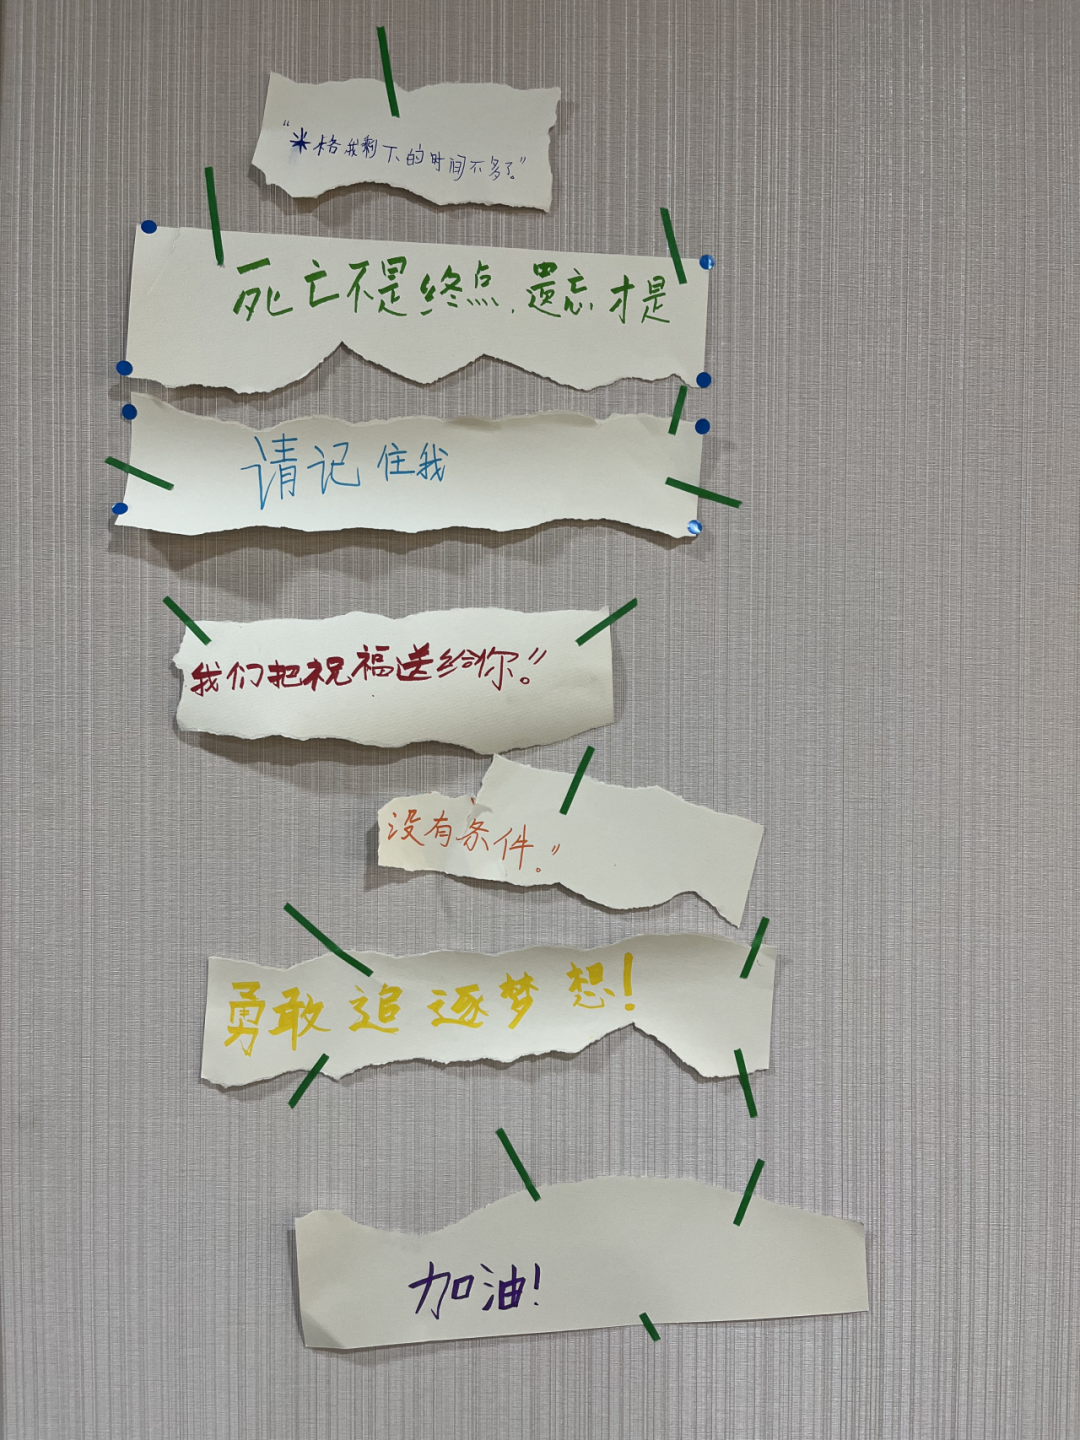 “米格我剩下的时间不多了。”
死亡不是终点.遗忘才是
请记住我
我们把祝福送给你。”
没有条件。”
勇敢追逐梦想!
加油!